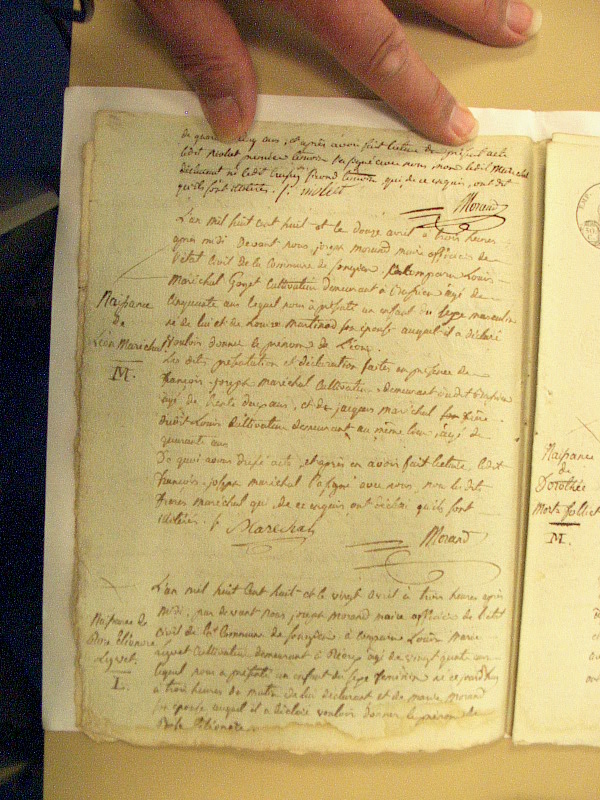 de quarante cinq ans, et après avoir fait lecture du présent acte
ledit Nicolet premier témoin l'a signé avec nous, non ledit Maréchal
déclarant ni ledit second témoin qui, de ce enquis, ont dit
qu'ils sont illitérés.
Morand
L'an mil huit cent huit et le douze avril à trois heures
après midi devant nous joseph morand maire officier de
l'état Civil de la Commune de Songieu, est comparu Louis
Maréchal Goyet Cultivateur demeurant à age de
Cinquante ans lequel nous a présenté un enfant du sexe masculin
né de lui et de Louise Martinod son épouse auquel il a déclaré
Vouloir donner le prénom de Léon.
Les dits présentation et déclaration faites en présence de
françois joseph maréchal Cultivateur demeurant audit
agé de trente ans, et de jacques maréchal frère
dudit Louis Cultivateur demeurant au même lieu, agé de
quarante ans
De quoi avons dressé acte, et après en avoir fait lecture ledit
françois joseph maréchal l'a signé avec nous, non les dits
frères maréchal qui, de ce enquis, ont déclaré qu'ils sont
illitérés. f. Marechal
Morand
Naissance
de
Léon Maréchal.
M.
L'an mil huit cent huit et le vingt avril à trois heures après
midi, par devant Nous joseph morand maire officier de l'état
Civil de la Commune de Songieu a comparu Louis Marie
Cultivateur demeurant à agé de vingt quatre ans
lequel nous a présenté un enfant du sexe féminin né ce jourd'hui
à trois heures du matin de lui déclarant et de marie Morand
son épouse auquel il a déclaré vouloir donner le prénom de
Rose Eléonore.
Naissance de
Rose Eléonore
L.
Naissance
de
Dorothée
Marte Jolliet
M.